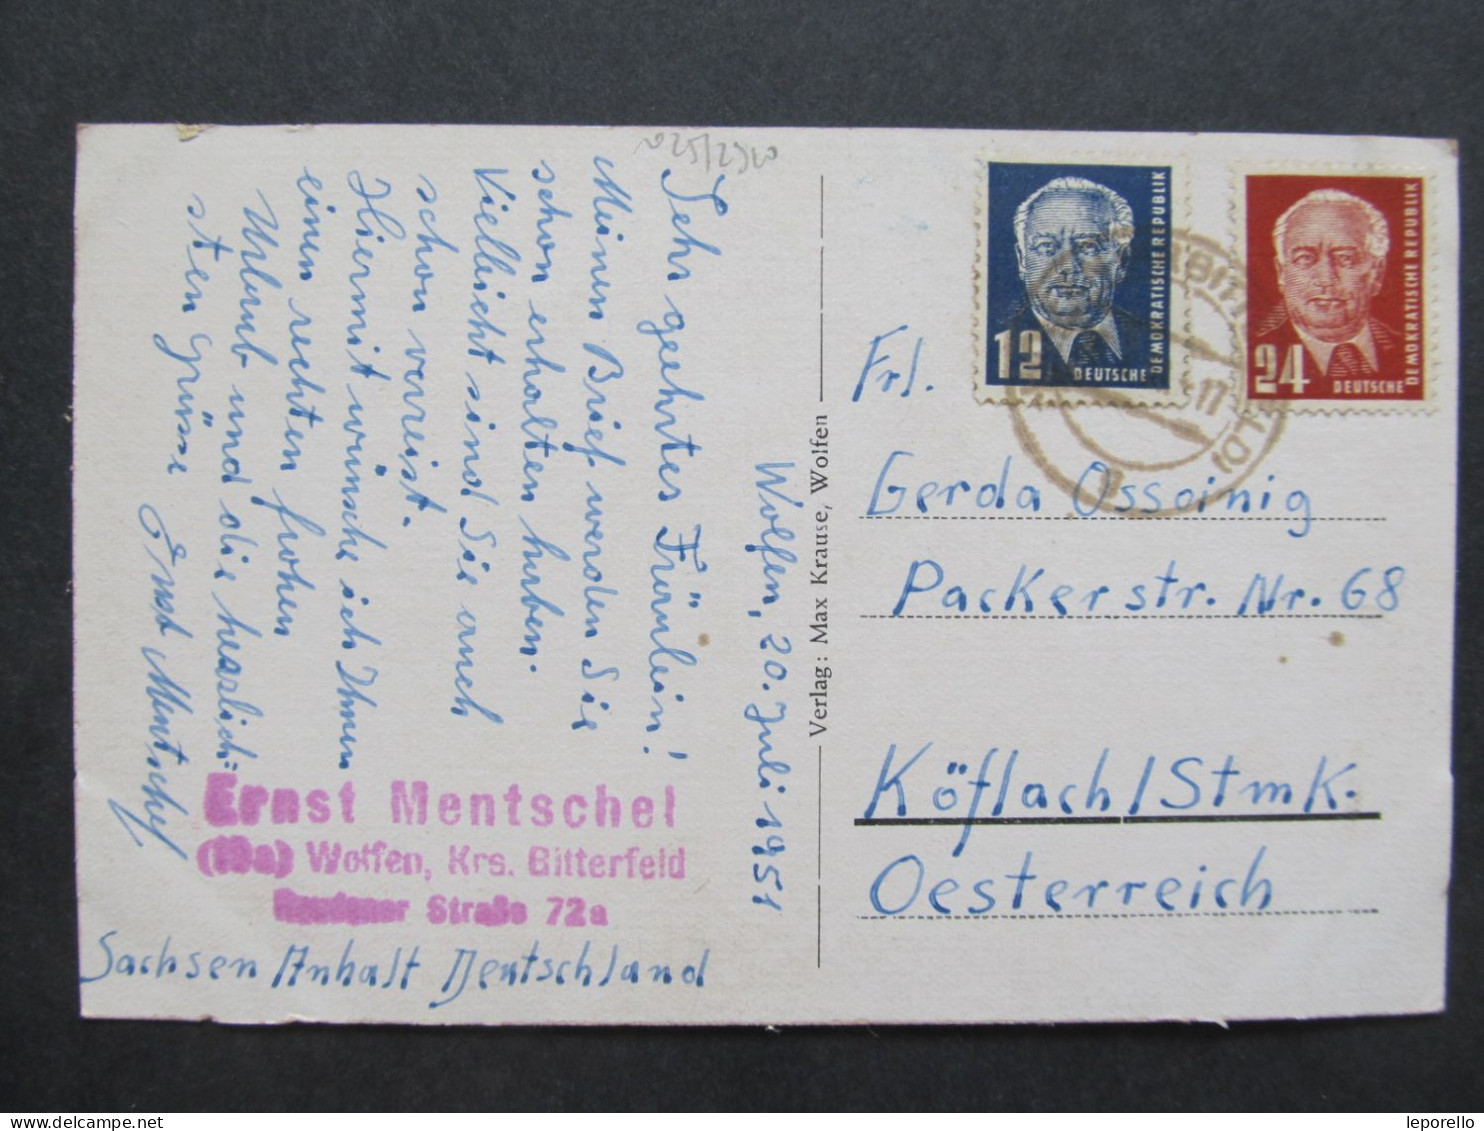 Wolfen, 20. Juli 1951
Sehr geehrtes Fräulein!
Meinen Brief werden Sie
schon erhalten haben.
Vielleicht sind Sie auch
schon verreist.
Hiermit wünsche ich Ihnen
einen rechten frohen
Urlaub und die herzlich=
sten Grüsse Ernst Mentschel
Ernst Mentschel
Wolfen, Krs. Bitterfeld
Straße 72a
Sachsen Anhalt Deutschland
Verlag: Max Krause, Wolfen
12
DEUTSCHE
DEMOKRATISCHE REPUBLIK
24
DEUTSCHE
DEMOKRATISCHE REPUBLIK
Frl.
Gerda Ossoinig
Packerstr. Nr. 68
Köflach/Stmk.
Oesterreich
leporello